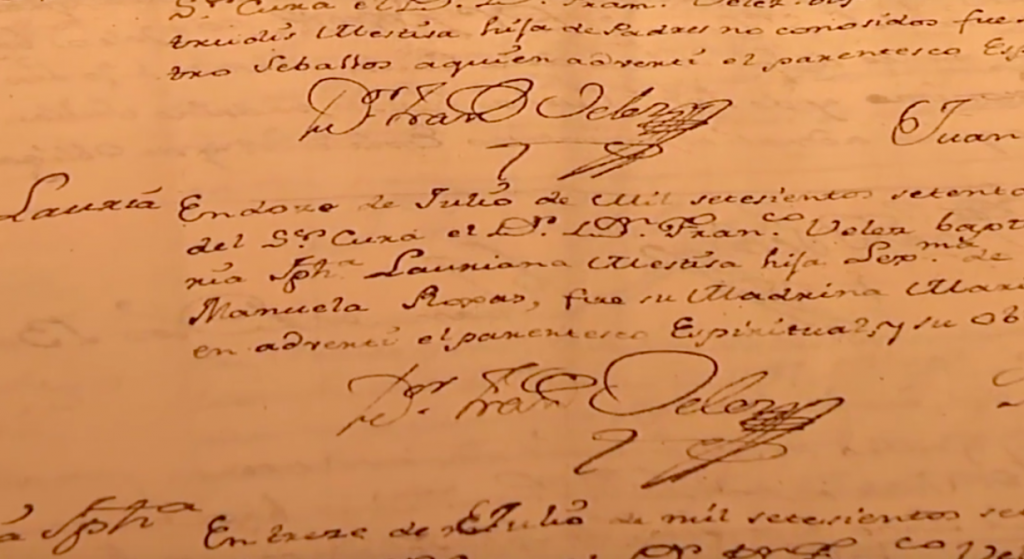 Sr. Cura el D. D. Fran. Velez
Mestisa hija de Padres no conosidos fue
tro Seballos a quien adverti el parentesco Esp
Dr. Fran Velez
Juan
Lauriā En dose de Julio de Mil setesientos setent
del Sr. Cura el Dr. D. Dn. Franco. Velez bapt
ria Jpha Lauriana Mestisa hija Lexma. de
Manuela Roxas, fue su Madrina Mar
en adverti el parentesco Espiritual, y su Ob
Dr. Fran Velez
Jpha En trese de Julio de mil setesientos se